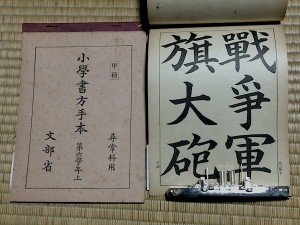 甲種
小學書方手本
第六學年上
尋常科用
文部省
戰爭軍
旗大砲